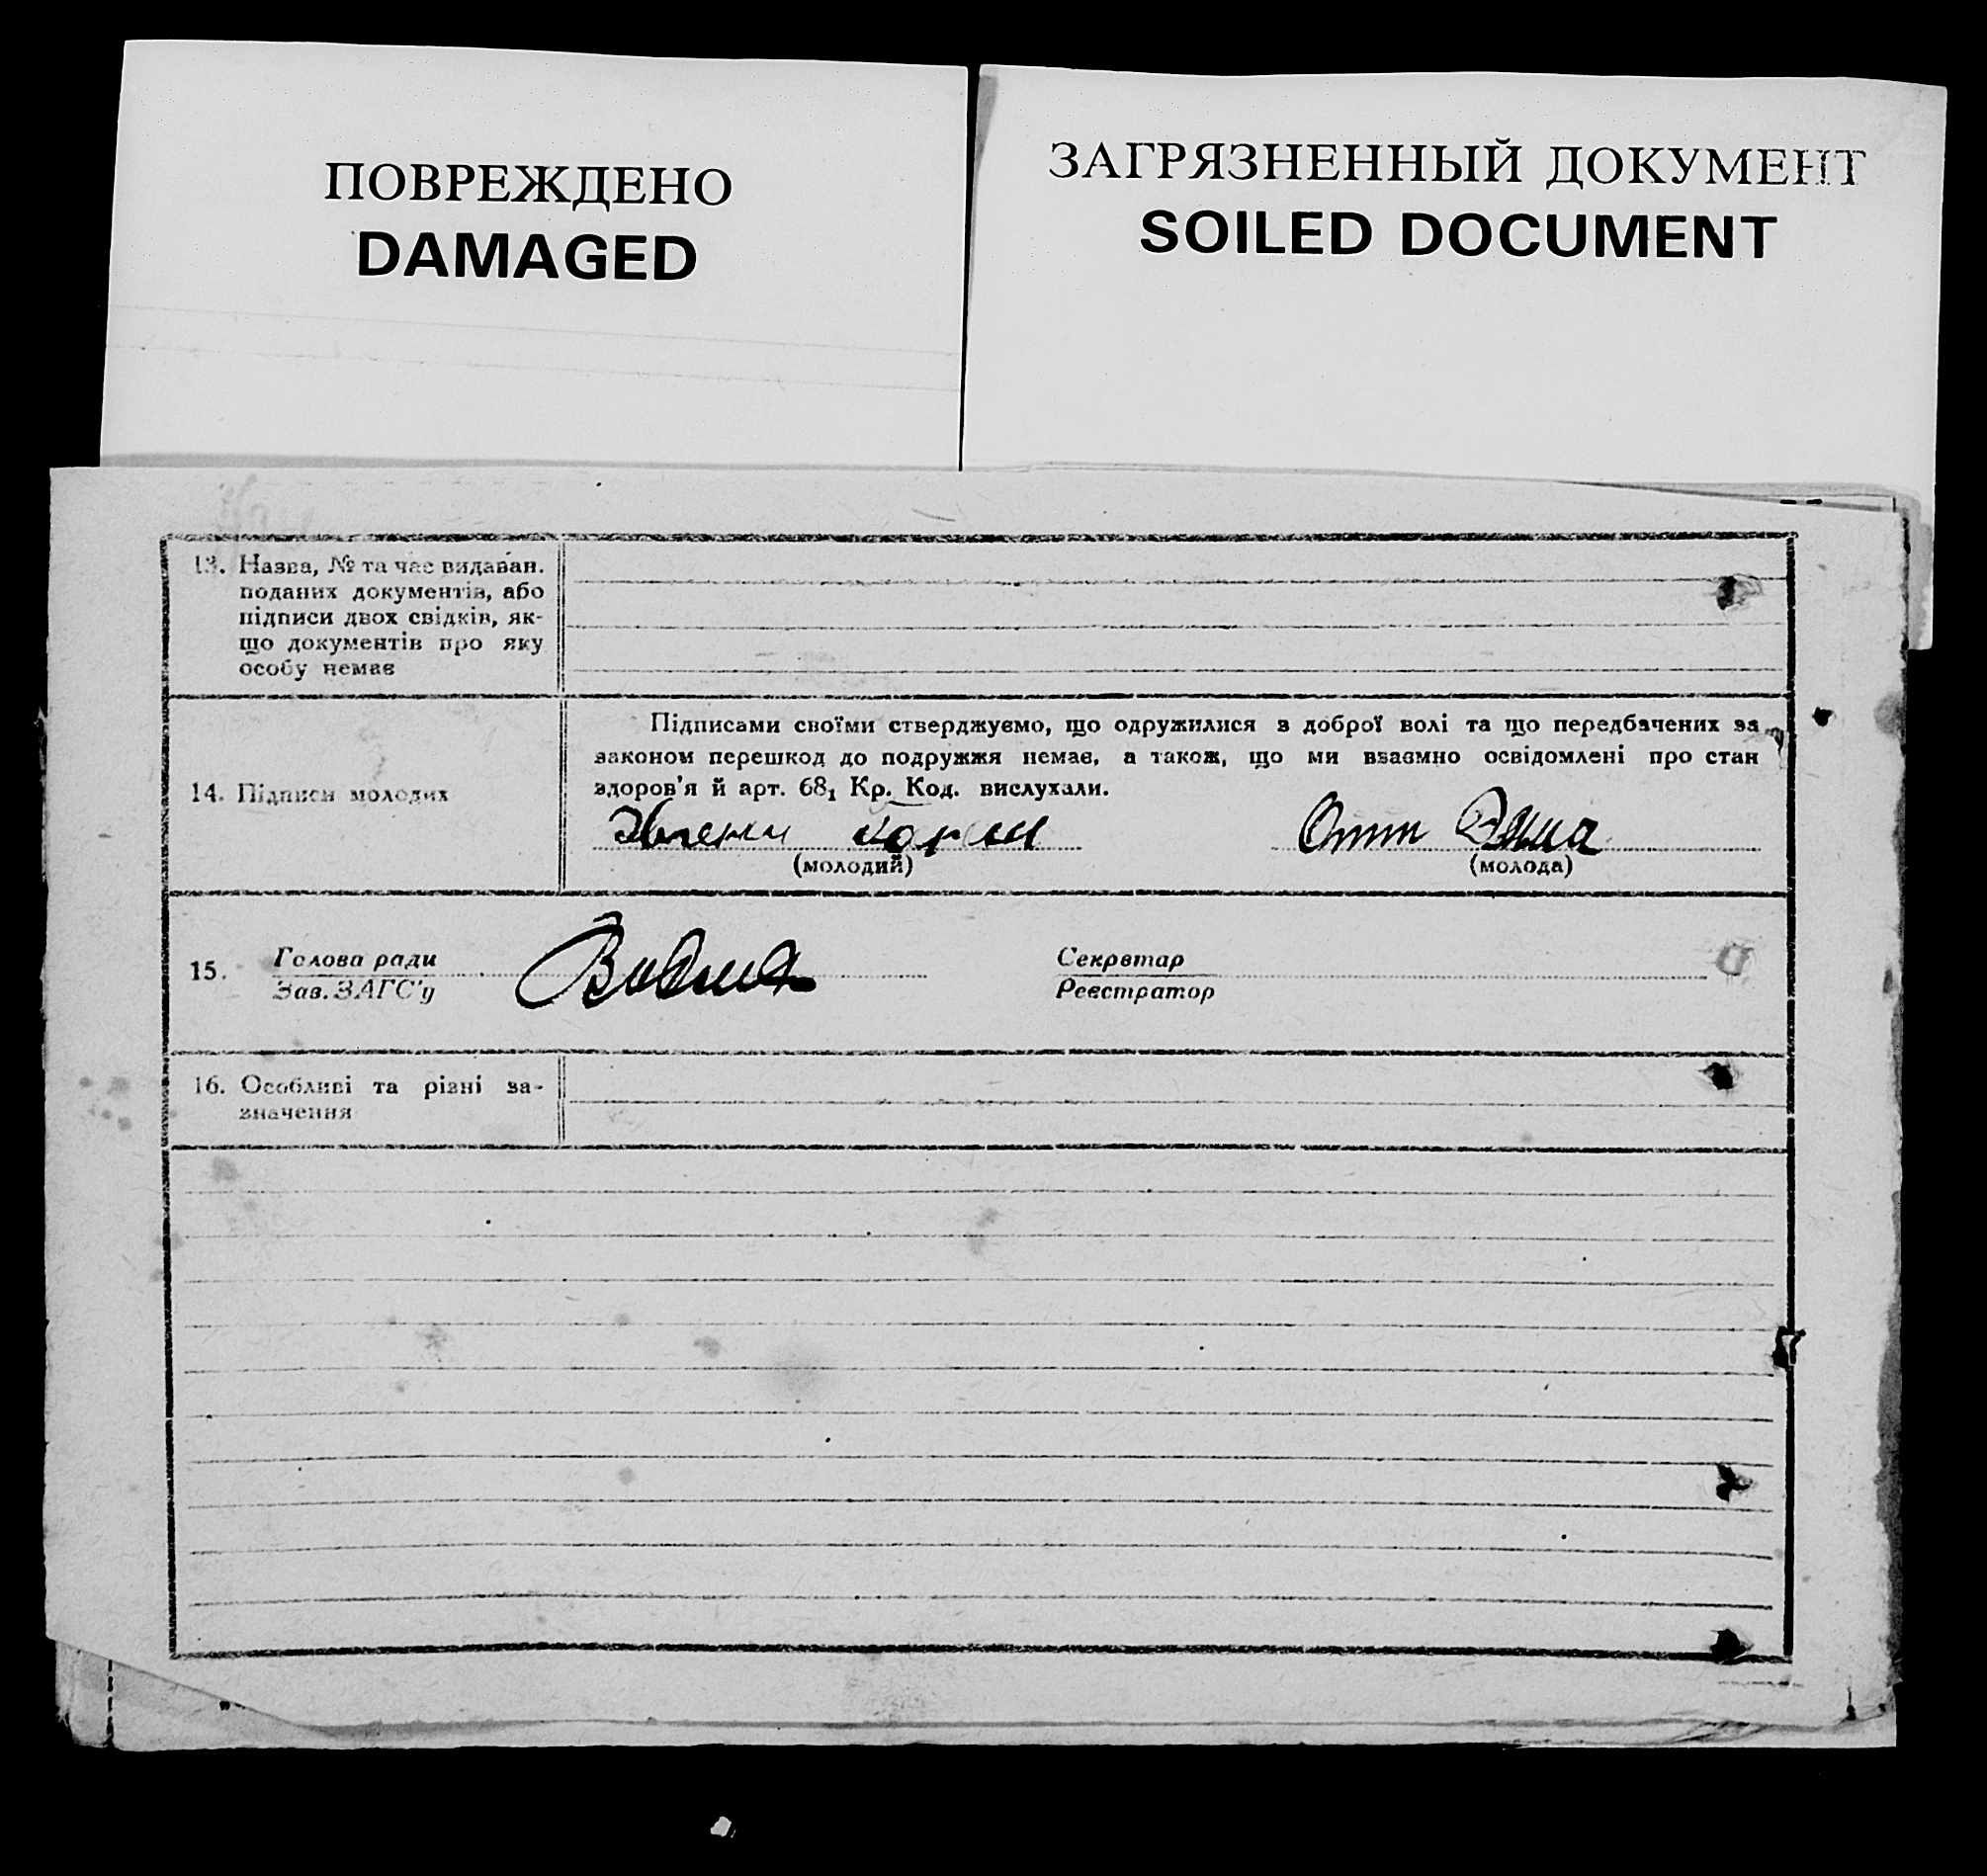 ПОВРЕЖДЕНО
DAMAGED
ЗАГРЯЗНЕННЫЙ ДОКУМЕНТ
SOILED DOCUMENT
13. Назва, № та час видаван.
поданих документів, або
підписи двох свідків, як-
що документів про яку
особу немає
14. Підписи молодих
Підписами своїми стверджуємо, що одружилися з доброї волі та що передбачених за
законом перешкод до подружжя немає, а також, що ми взаємно освідомлені про стан
здоров'я й арт. 68₁ Кр. Код. вислухали.
Отт Эмма
(молодий)
(молода)
15. Голова ради
Зав. ЗАГС'у
Секретар
Реєстратор
16. Особливі та різні за-
значення